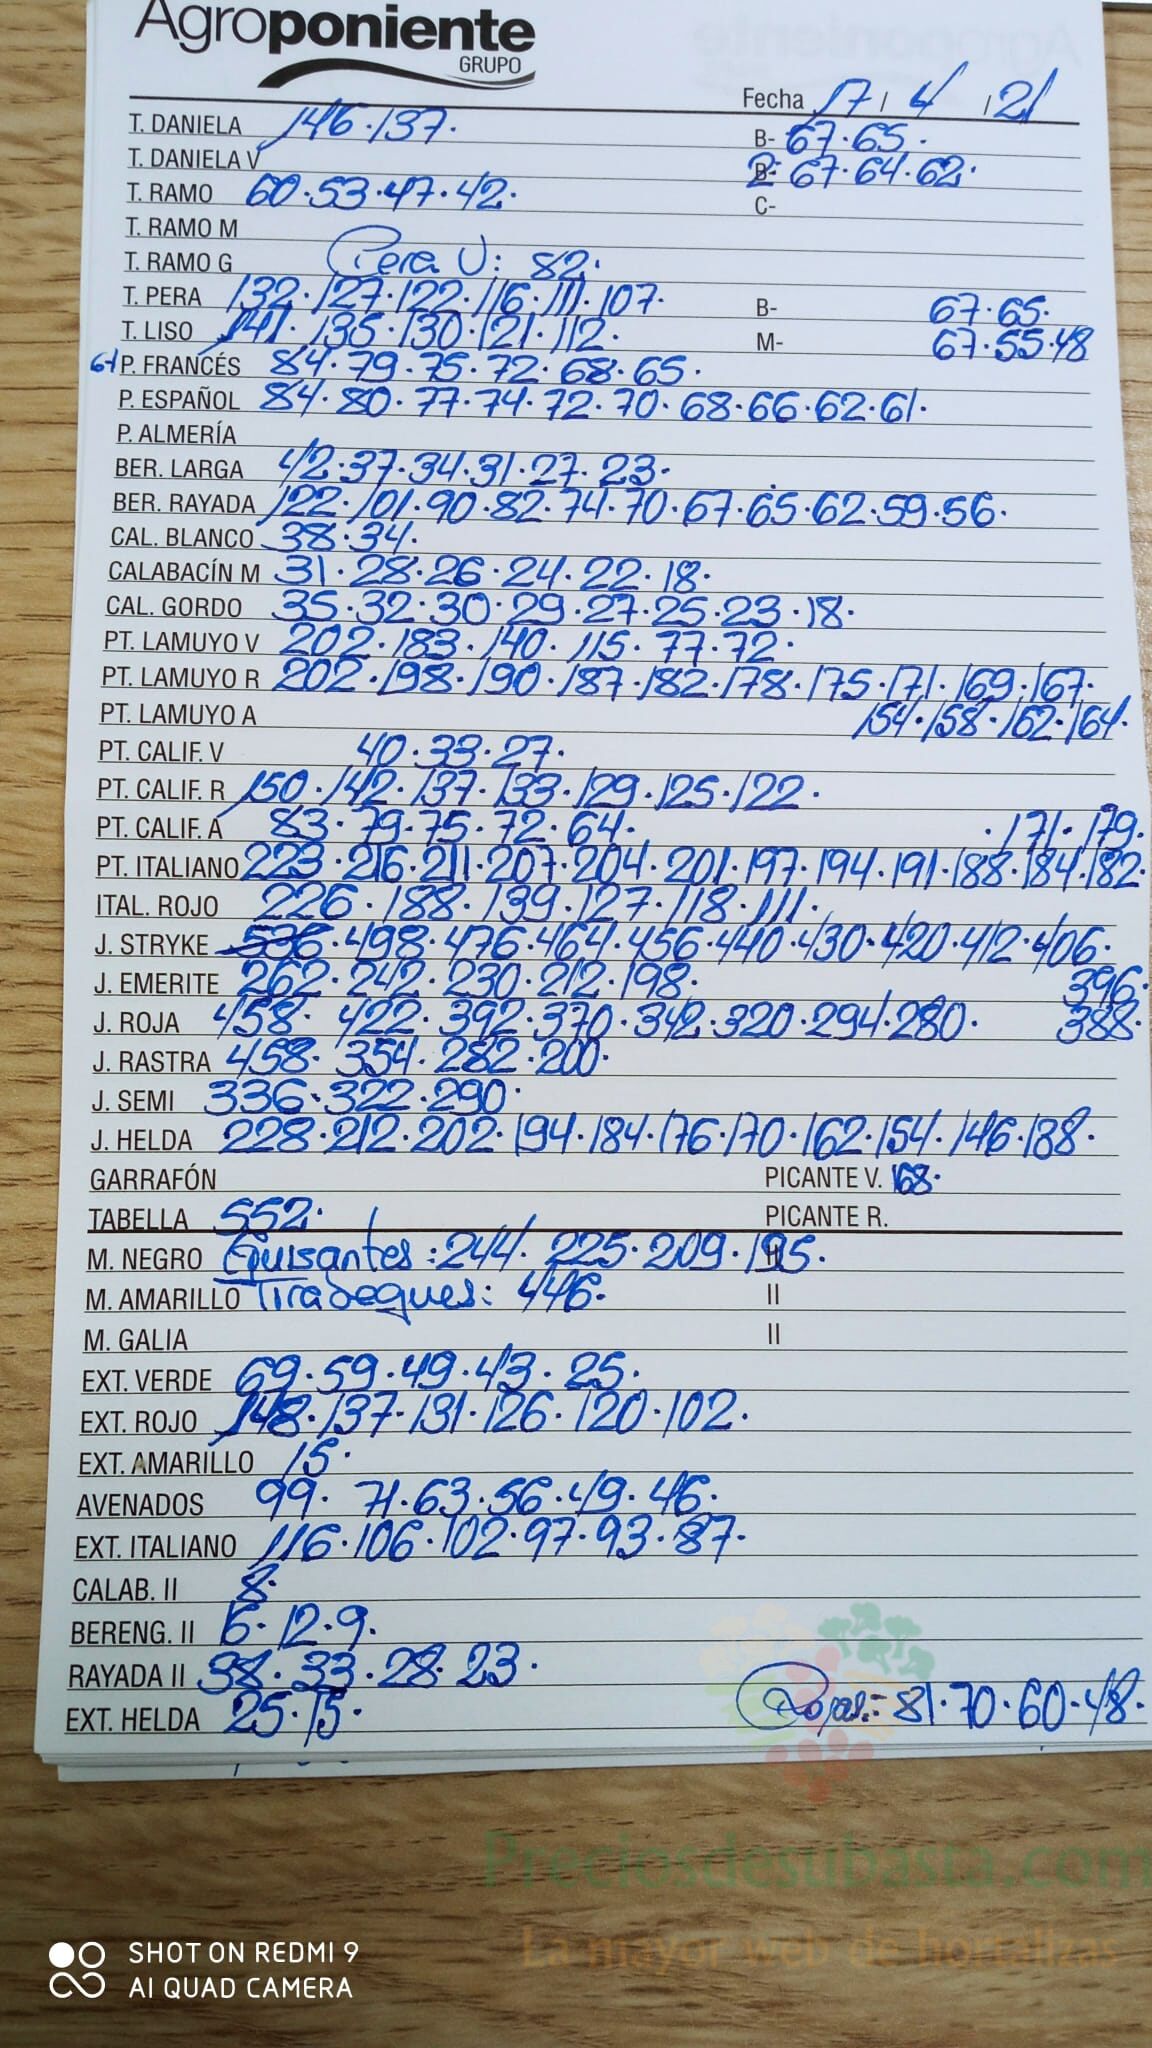 Agroponiente
GRUPO
Fecha 17 / 4 / 21
T. DANIELA 146·137· B- 67·65·
T. DANIELA V 2- 67·64·62·
T. RAMO 60·53·47·42· C-
T. RAMO M
T. RAMO G Pera V: 82·
T. PERA 132·127·122·116·111·107· B- 67·65·
T. LISO 141·135·130·121·112· M- 67·55·48
61 P. FRANCÉS 84·79·75·72·68·65·
P. ESPAÑOL 84·80·77·74·72·70·68·66·62·61·
P. ALMERÍA
BER. LARGA 42·37·34·31·27·23·
BER. RAYADA 122·101·90·82·74·70·67·65·62·59·56·
CAL. BLANCO 38·34·
CALABACÍN M 31·28·26·24·22·18·
CAL. GORDO 35·32·30·29·27·25·23·18·
PT. LAMUYO V 202·183·140·115·77·72·
PT. LAMUYO R 202·198·190·187·182·178·175·171·169·167·
PT. LAMUYO A 154·158·162·164·
PT. CALIF. V 40·33·27·
PT. CALIF. R 150·142·137·133·129·125·122·
PT. CALIF. A 83·79·75·72·64· ·171·179·
PT. ITALIANO 223·216·211·207·204·201·197·194·191·188·184·182·
ITAL. ROJO 226·188·139·127·118·111·
J. STRYKE 536·498·476·464·456·440·430·420·412·406·
J. EMERITE 262·242·230·212·198· 396·
J. ROJA 458·422·392·370·342·320·294·280· 388·
J. RASTRA 458·354·282·200·
J. SEMI 336·322·290·
J. HELDA 228·212·202·194·184·176·170·162·154·146·138·
GARRAFÓN PICANTE V. 168·
TABELLA 552· PICANTE R.
M. NEGRO Guisantes: 244·225·209·195· II
M. AMARILLO Tirabeques: 446· II
M. GALIA II
EXT. VERDE 69·59·49·43·25·
EXT. ROJO 148·137·131·126·120·102·
EXT. AMARILLO 15·
AVENADOS 99·71·63·56·49·46·
EXT. ITALIANO 116·106·102·97·93·87·
CALAB. II 8·
BERENG. II 16·12·9·
RAYADA II 38·33·28·23·
EXT. HELDA 25·15· Rojas:- 81·70·60·48·
Preciosdesubasta.com
La mayor web de hortalizas
SHOT ON REDMI 9
AI QUAD CAMERA